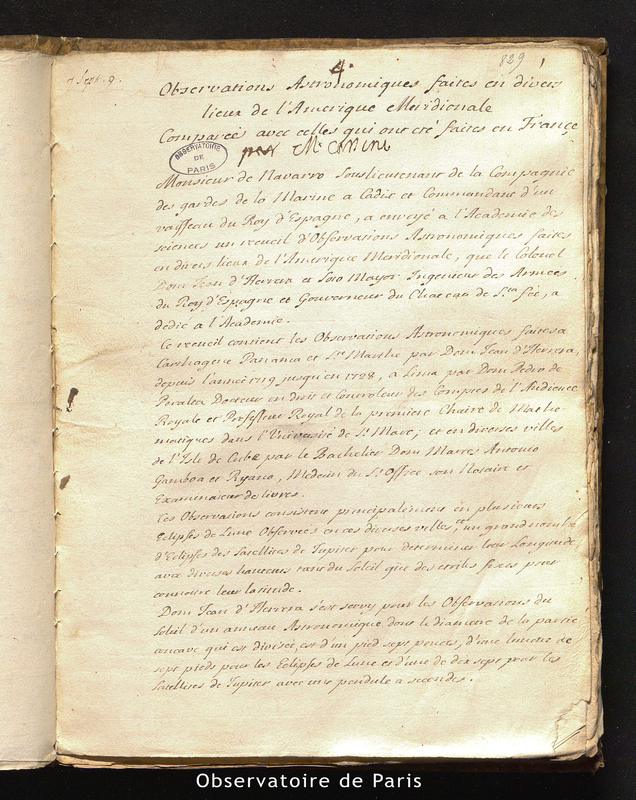 829
4.
Observations Astronomiques faites en divers
lieux de l'Amerique Meridionale
Comparées avec celles qui ont eté faites en France
par Mr Cassini
OBSERVATOIRE
DE
PARIS
Monsieur de Navarro Souslieutenant de la Compagnie
des gardes de la Marine a Cadix et Commandant d'un
vaisseau du Roy d'Espagne, a envoyé a l'Academie des
sciences un recueil d'Observations Astronomiques faites
en divers lieux de l'Amerique Meridionale, que le Colonel
Dom Jean d'Herrera et Soto Mayor Ingenieur des Armées
du Roy d'Espagne et Gouverneur du Chateau de Sta fée, a
dedié a l'Academie.
Ce recueil contient les Observations Astronomiques faites a
Carthagene Panama et Ste Marthe par Dom Jean d'Herrera,
depuis l'année 1719 jusqu'en 1728, a Lima par Dom Pedro de
Peralta Docteur en droit et Controleur des Comptes de l'Audience
Royale et Professeur Royal de la premiere Chaire de Mathe-
matiques dans l'Université de St Marc; et en diverses villes
de l'Isle de Cube par le Bachelier Dom Marc Antonio
Gamboa et Ryano, Medecin du St Office son Notaire et
Examinateur de livres.
Ces Observations consistent principalement en plusieurs
Eclipses de Lune Observées en ces diverses villes, et un grand nombre
d'Eclipses des Satellites de Jupiter pour determiner leur Longitude,
avec diverses hauteurs tant du Soleil que des etoiles fixes pour
connoitre leur latitude.
Dom Jean d'Herrera s'est servy pour les Observations du
Soleil d'un anneau Astronomique dont le diametre de la partie
concave qui est divisée, est d'un pied sept pouces, d'une lunette de
sept pieds pour les Eclipses de Lune et d'une de dix sept pour les
Satellites de Jupiter avec une pendule a secondes.
Observatoire de Paris